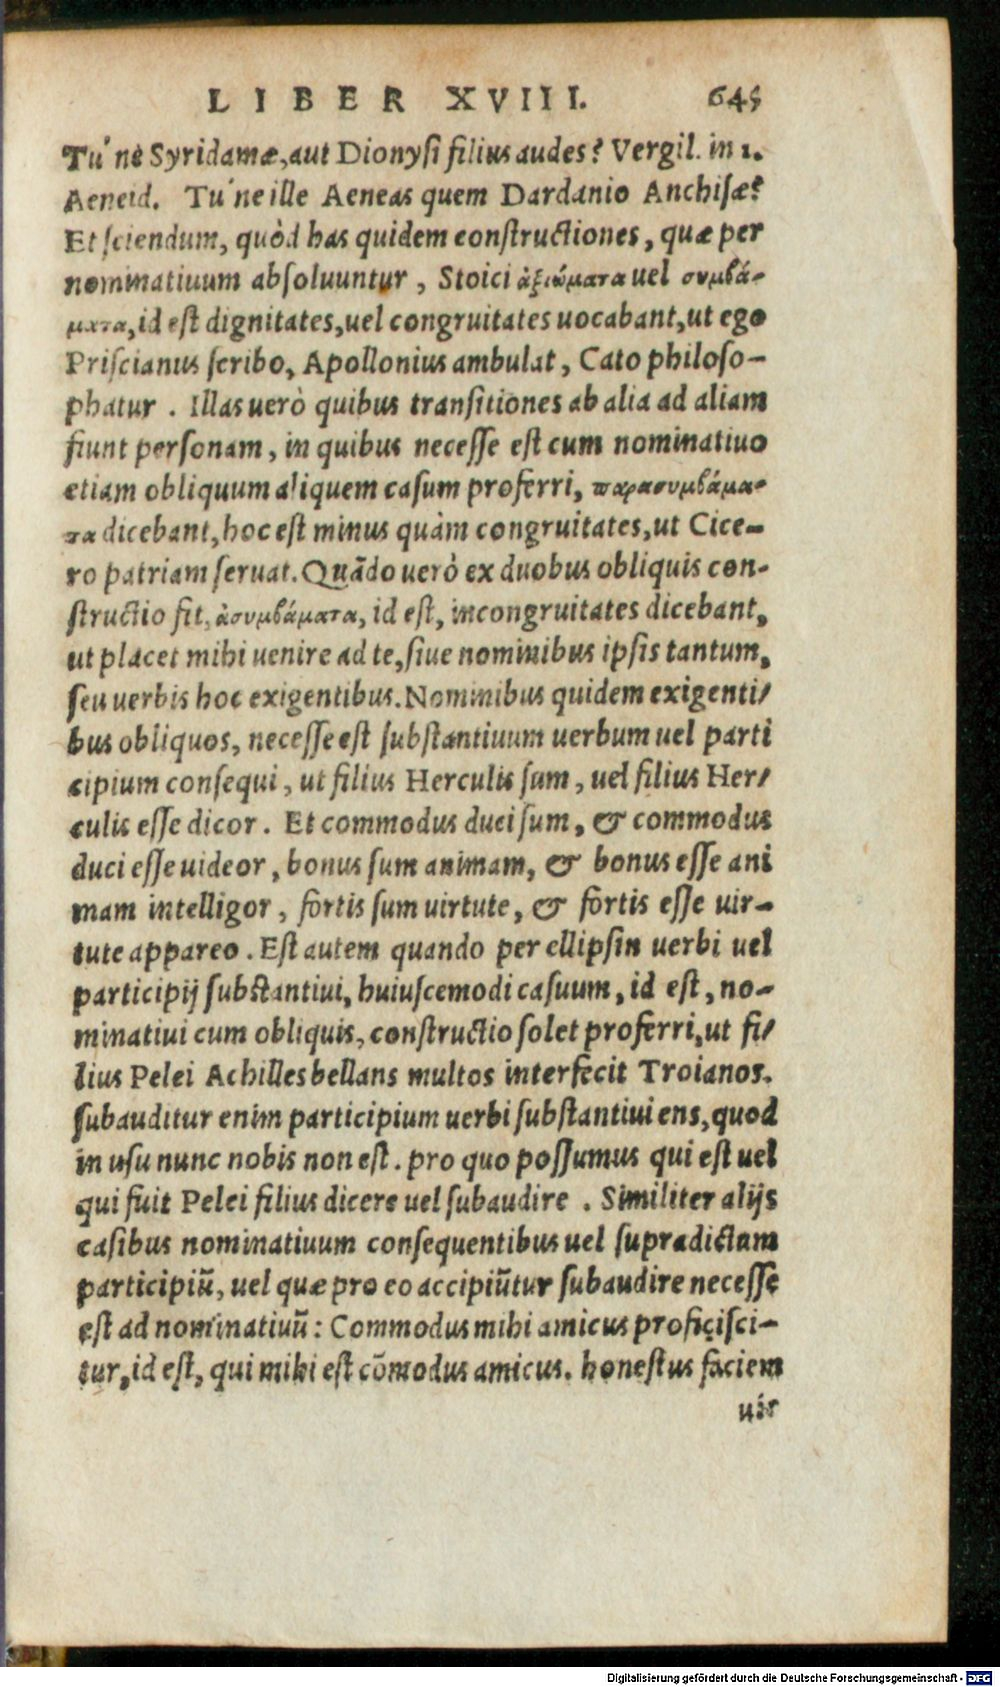 LIBER XVIII. 645
Tu´ne Syridamæ, aut Dionysi filius audes? Vergil. in 1.
Aeneid. Tu´ne ille Aeneas quem Dardanio Anchisæ?
Et sciendum, quòd has quidem constructiones, quæ per
nominatiuum absoluuntur, Stoici ἀξιώματα uel συμβά-
ματα, id est dignitates, uel congruitates uocabant, ut ego
Priscianus scribo, Apollonius ambulat, Cato philoso-
phatur. Illas uerò quibus transitiones ab alia ad aliam
fiunt personam, in quibus necesse est cum nominatiuo
etiam obliquum aliquem casum proferri, παρασυμβάμα-
τα dicebant, hoc est minus quàm congruitates, ut Cice-
ro patriam seruat. Quãdo uerò ex duobus obliquis con-
structio fit, ἀσυμβάματα, id est, incongruitates dicebant,
ut placet mihi uenire ad te, siue nominibus ipsis tantum,
seu uerbis hoc exigentibus. Nominibus quidem exigenti/
bus obliquos, necesse est substantiuum uerbum uel parti
cipium consequi, ut filius Herculis sum, uel filius Her/
culis esse dicor. Et commodus duci sum, & commodus
duci esse uideor, bonus sum animam, & bonus esse ani
mam intelligor, fortis sum uirtute, & fortis esse uir-
tute appareo. Est autem quando per ellipsin uerbi uel
participij substantiui, huiuscemodi casuum, id est, no-
minatiui cum obliquis, constructio solet proferri, ut fi/
lius Pelei Achilles bellans multos interfecit Troianos.
subauditur enim participium uerbi substantiui ens, quod
in usu nunc nobis non est. pro quo possumus qui est uel
qui fuit Pelei filius dicere uel subaudire. Similiter alijs
casibus nominatiuum consequentibus uel supradictam
participiũ, uel quæ pro eo accipiũtur subaudire necesse
est ad nominatiuũ: Commodus mihi amicus proficisci-
tur, id est, qui mihi est cõmodus amicus. honestus faciem
uir
Digitalisierung gefördert durch die Deutsche Forschungsgemeinschaft - DFG